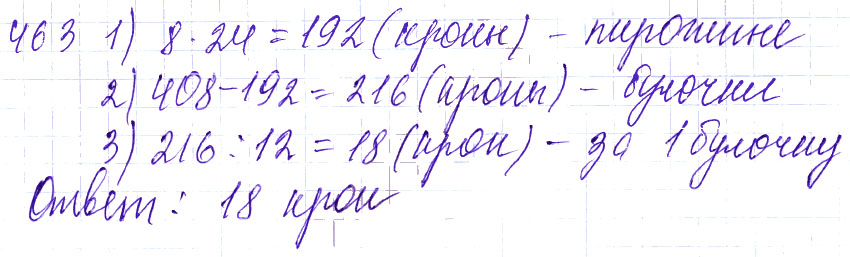 463 1) 8·24=192 (кроны) - пирожные
2) 408-192=216 (кроны) - булочки
3) 216:12=18 (крон) - за 1 булочку
Ответ: 18 крон